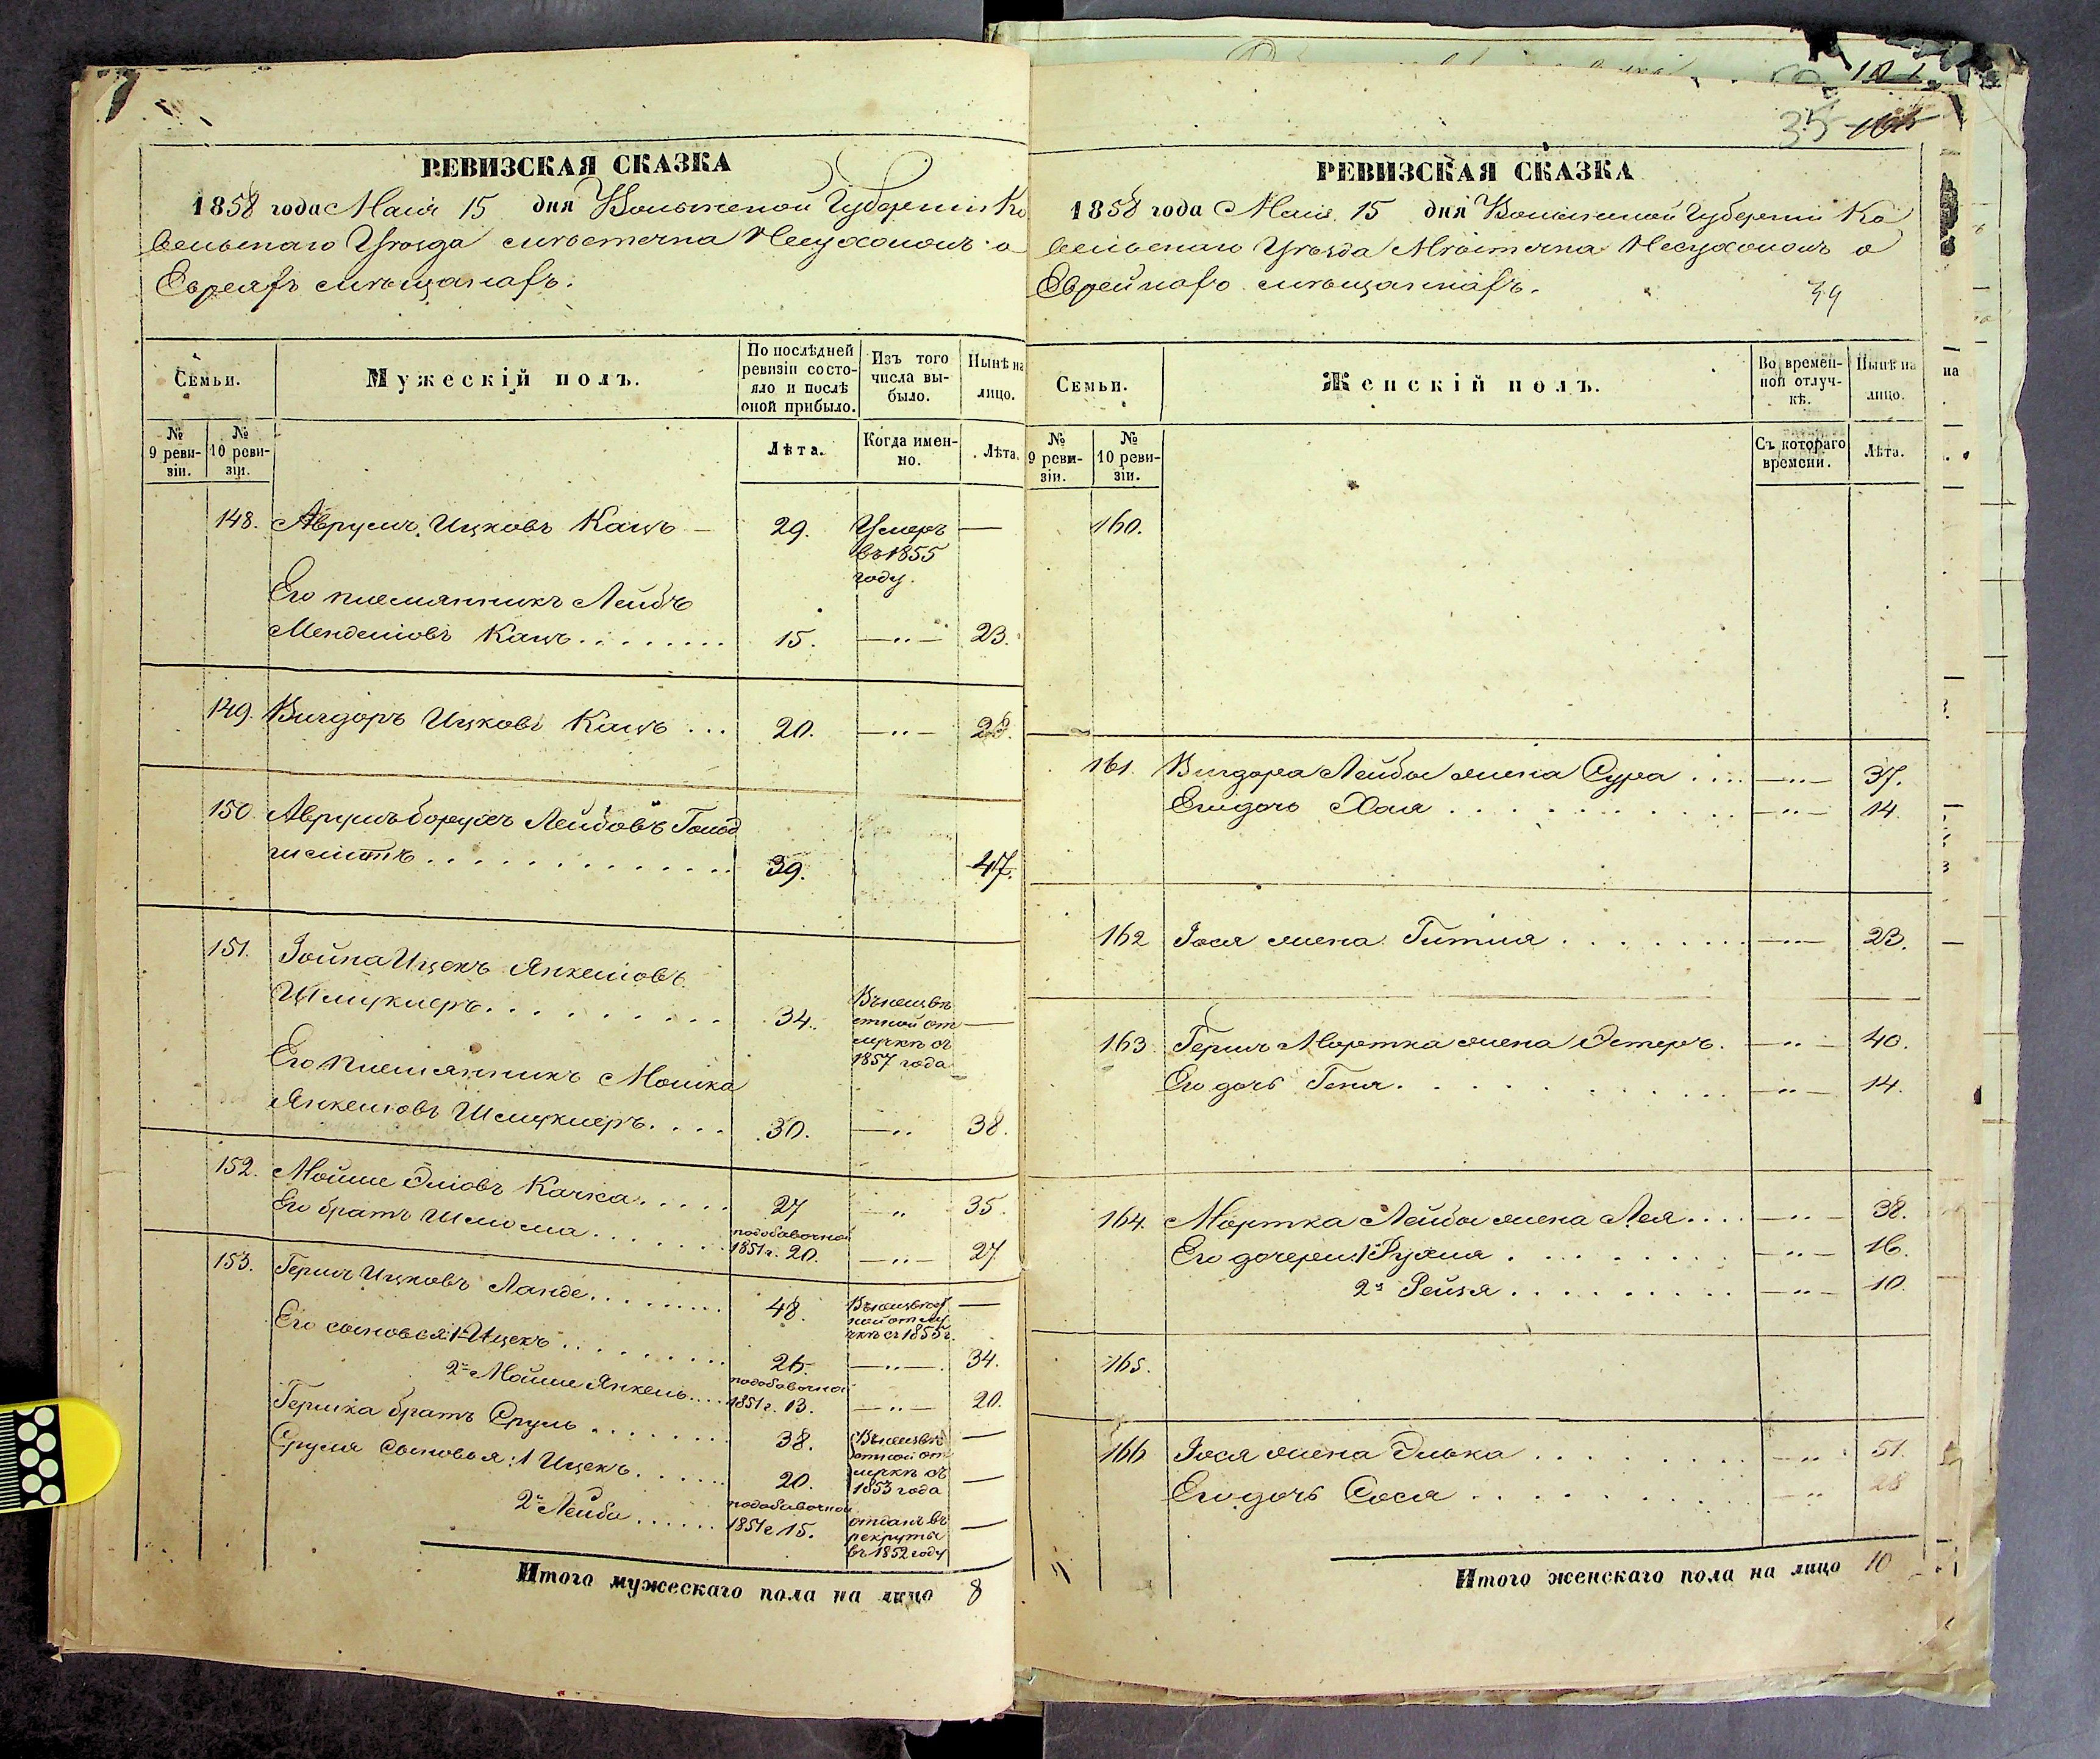 РЕВИЗСКАЯ СКАЗКА
1858 года Маія 15 дня Волынской Губерніи Ко
вельскаго Уѣзда мѣстечка Несухоижъ о
Евреяхъ мѣщанахъ.
Семьи.
Мужескій полъ.
По послѣдней ревизіи состояло и послѣ оной прибыло.
Изъ того числа выбыло.
Нынѣ на лицо.
№ 9 ревизіи.
№ 10 ревизіи.
Лѣта.
Когда именно.
Лѣта.
148. Аврумъ Ицковъ Кацъ — 29. Умеръ —
въ 1855
году.
Его племянникъ Лейбъ
Менделіовъ Кацъ........ 15. —"— 23.
149. Вигдоръ Ицковъ Кацъ ... 20. —"— 28.
150. Аврумъ Борухъ Лейбовъ Голод
............ 39. 47.
151. Іойна Ицекъ Янкеліовъ
Шмуклеръ......... 34. Въ безвѣ
стной от —
лучкѣ съ
1857 года
Его племянникъ Мошка
Янкеліовъ Шмуклеръ.... 30. —" 38.
152. Мойше Эліовъ Качка..... 27 —" 35.
Его братъ Шліома....... подобавочной
1851 г. 20. —"— 27
153. Гершъ Ицковъ Ланде......... 48. Въ безвѣст —
ной отлу
чкѣ съ 1855 г.
Его сыновья: 1й Ицекъ......... 26. —"— 34.
2й Мойше Янкель.... подобавочной
1851 г. 13. —"— 20.
Гершка братъ Сруль ........ 38. Въ безвѣ —
стной от
лучкѣ съ
1853 года
Сруля сыновья: 1 Ицекъ...... 20. —
2й Лейба ...... подобавочной
1851 г 15. отданъ въ —
рекруты
въ 1852 году
Итого мужескаго пола на лицо 8
35 165
РЕВИЗСКАЯ СКАЗКА
1858 года Маія 15 дня Волынской Губерніи Ко
вельскаго Уѣзда Мѣстечка Несухоижъ о
Еврейкахъ мѣщанкахъ.
34
Семьи.
Женскій полъ.
Во временной отлучкѣ.
Нынѣ на лицо.
№ 9 ревизіи.
№ 10 ревизіи.
Съ котораго времени.
Лѣта.
160.
161. Вигдора Лейбы жена Сура .... —"— 37.
Его дочь Хая ........... —"— 14.
162 Іося жена Гитля ........ —"— 23.
163. Гершъ Мортка жена Эстеръ. —"— 40.
Его дочь Геня.......... —"— 14.
164. Мортка Лейбы жена Лея.... —"— 38.
Его дочери: 1 Рухля ........ —"— 16.
2я Рейзя.......... —"— 10.
165.
166 Іося жена Элька ......... —" 51.
Его дочь Сося .......... —" 28
Итого женскаго пола на лицо 10